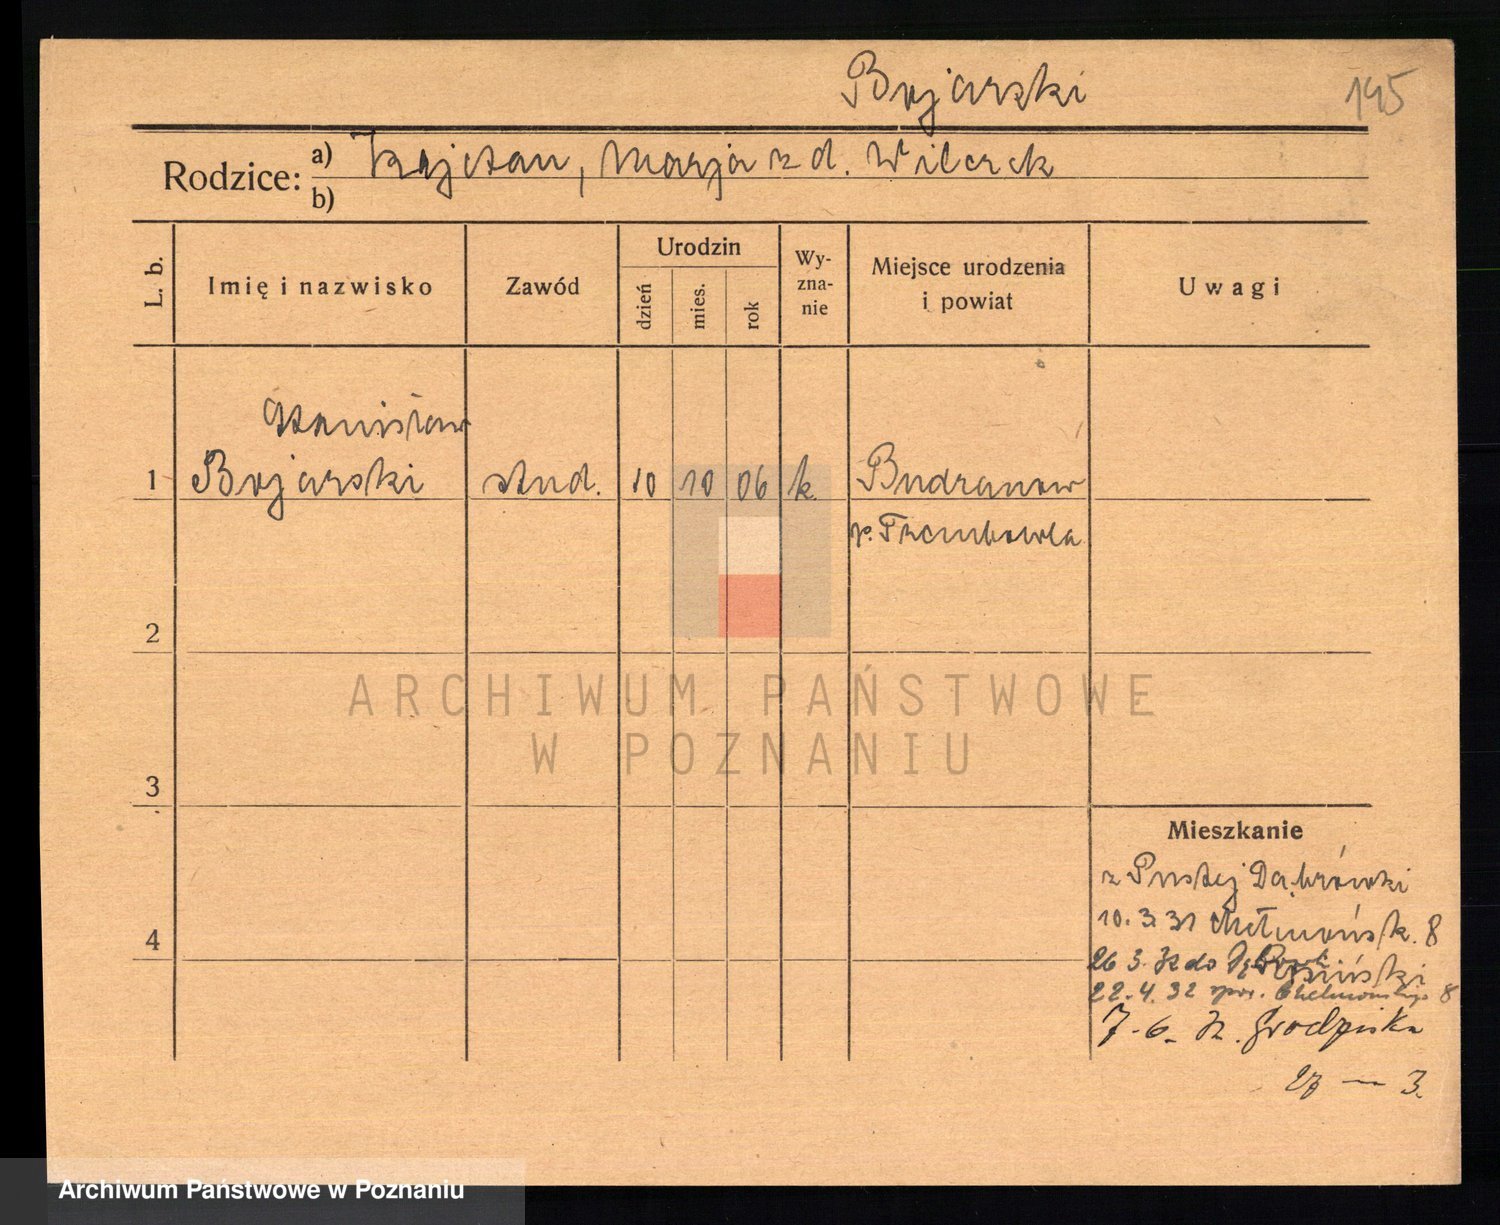 Bojarski
195
Rodzice: a) Kajetan, Marja z d. Wilczek
b)
L. b.
Imię i nazwisko
Zawód
Urodzin
dzień
mies.
rok
Wy-
zna-
nie
Miejsce urodzenia
i powiat
Uwagi
Stanisław
1 Bojarski stud. 10 10 06 k. Budzanów
p. Trembowla
2
3
4
ARCHIWUM PAŃSTWOWE
W POZNANIU
Mieszkanie
z Pustej Dąbrówki
10.3.31 Chełmońsk. 8
26 3. 32 do
22.4.32 Chełmońskiego 8
7-6- 32. Grodziska
27 — 3.
Archiwum Państwowe w Poznaniu